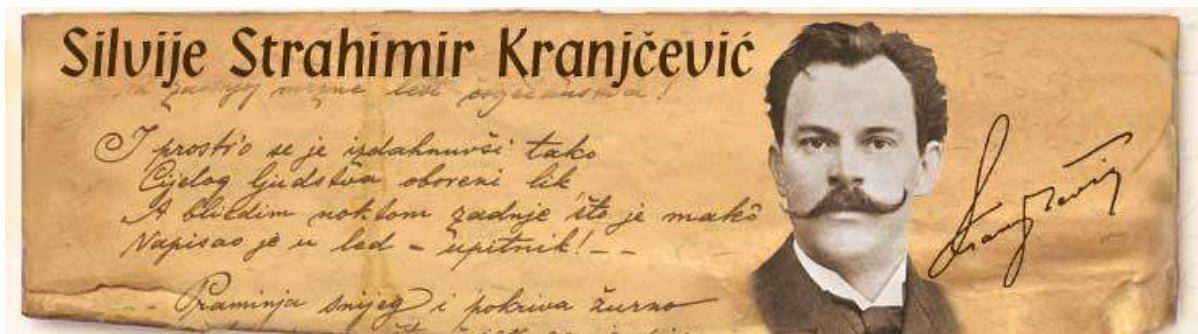 Silvije Strahimir Kranjčević
I prostr'o se je izdahnuvši tako
Cijelog ljudstva oboreni lik
A blijedim noktom zadnje što je mako
Napisao je u led – upitnik! – –
– – Praminja snijeg i pokriva žurno